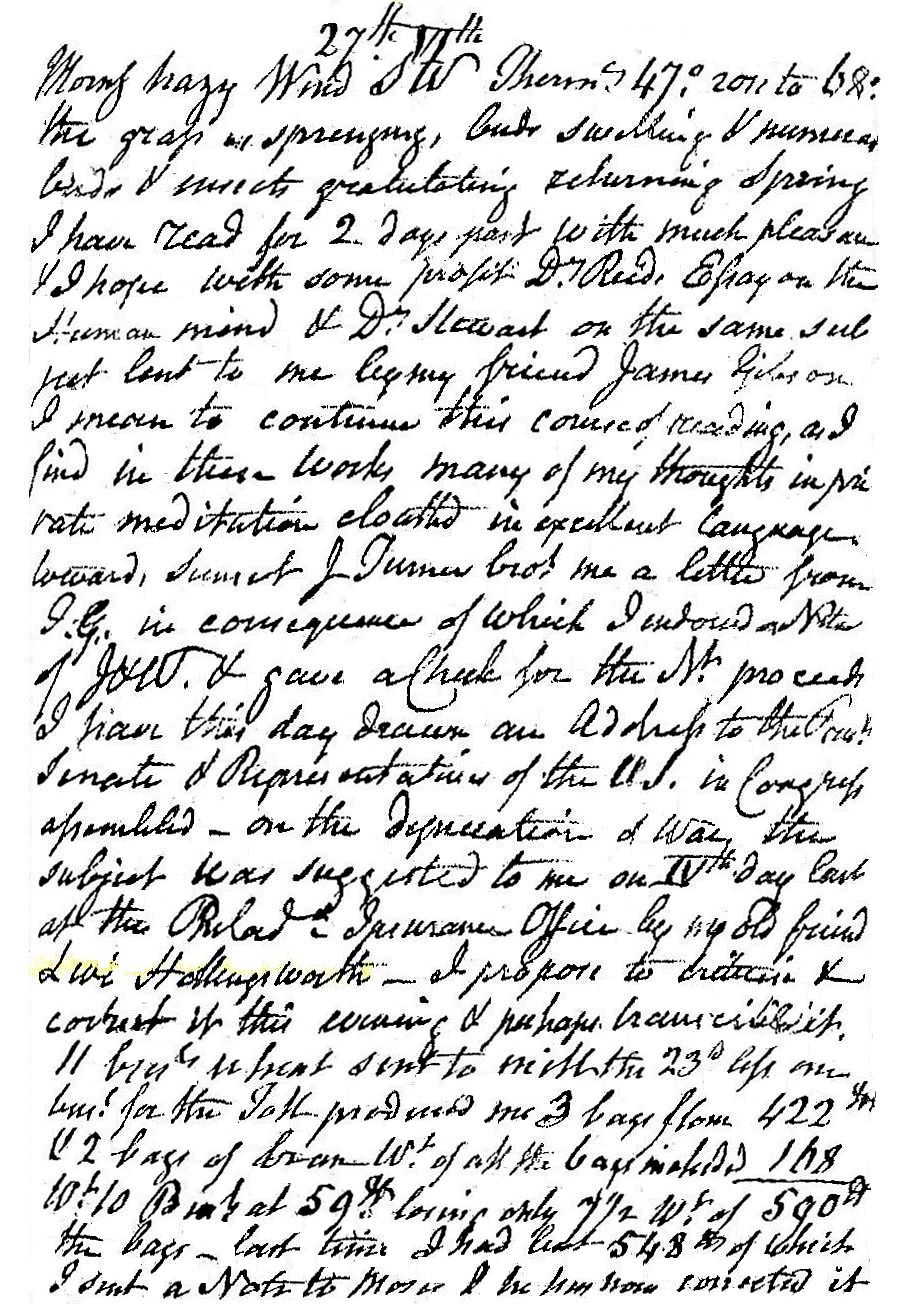 27th VIth
Morng hazy Wind SW Thermr 47° rose to 68°.
the grass is springing, buds swelling & numerous
birds & insects gratulating returning Spring
I have read for 2 days past with much pleasure
& I hope with some profit Dr Reeds Essay on the
Human mind & Dr Stewart on the same sub
ject lent to me by my friend James Gibson
I mean to continue this course of reading, as I
find in these works many of my thoughts in pri
vate meditation cloathed in excellent language.
toward, sunset J Turner brot me a letter from
J.G. in consequence of which I indorsed a Note
of J&W. & gave a Check for the Nt proceeds
I have this day drawn an Address to the Presdt
Senate & Representatives of the U.S. in Congress
assembled – on the deprecation of War, the
subject was suggested to me on IVth day last
at the Philada Insurance Office by my old friend
Levi Hollingsworth – I propose to criticise &
correct it this evening & perhaps transcribe it.
11 bushs wheat sent to mill the 23d less one
bus! for the Toll produced me 3 bags flour 422
& 2 bags of bran Wt. of all the bags included 168
Wt 10 Bush at 59 lb losing only 7½ Wt of 590 lb
the bags – last time I had but 548 lb of which
I sent a Note to Moses & he has now corrected it